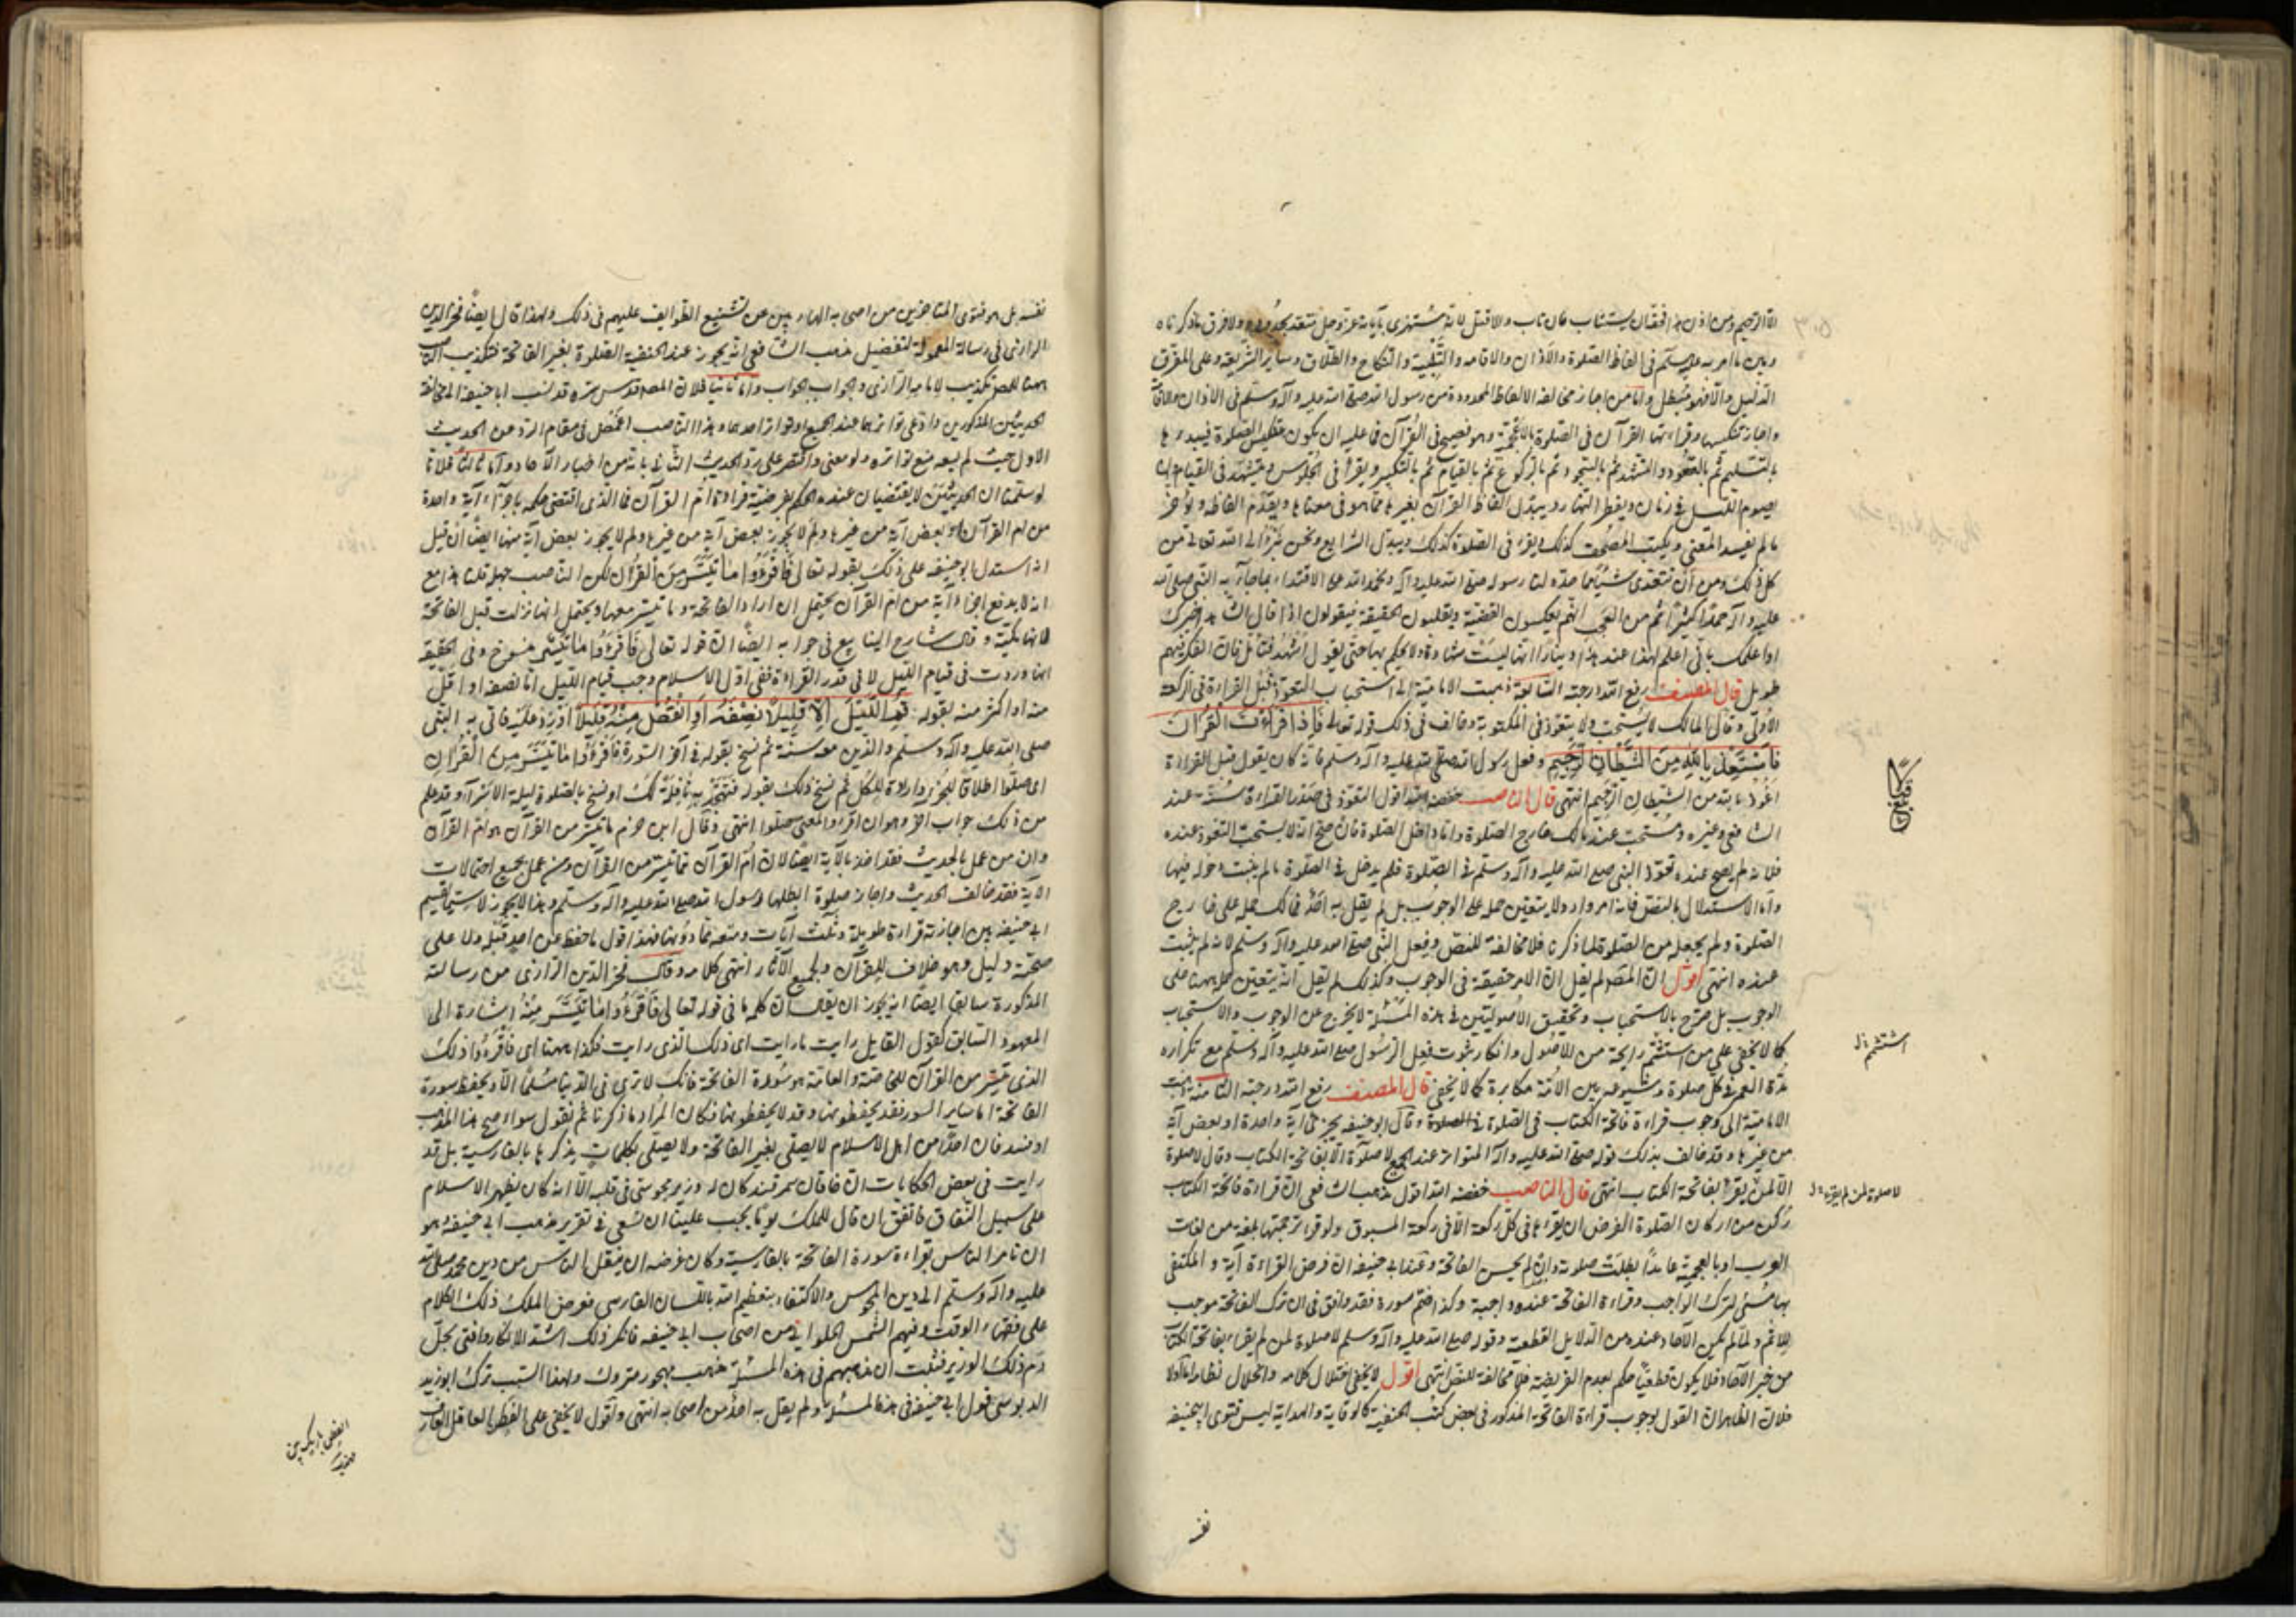 الا الرحيم ومن اذن هذا فقد ان يستتاب فان تاب والا قتل لانه مستهزى بآيات الله عز وجل متعد بحدوده ولا فرق ما ذكرناه
وبين ما امر به عليه السلم فى الفاظ الصلوة والاذان والاقامه والتلبية والنكاح والطلاق وساير الشريعة وعلى المفرق
الدليل والا فهو مبطل واما من اجاز مخالفة الالفاظ المحدودة من رسول الله صلى الله عليه وآله وسلم فى الاذان والاقامة
واجاز تنكيسها وقراءتها القرآن فى الصلوة بالاعجمية وهو فصيح فى القرآن فما عليه ان يكون تنكيس الصلوة فيبدءها
بالتسليم ثم بالقعود والتشهد ثم بالسجود ثم بالركوع ثم بالقيام ثم بالتكبير ويقرأ فى الجلوس ويتشهد فى القيام
يصوم الليل فى رمضان ويفطر النهار ويبدل الفاظ القرآن بغيرها مما هو فى معناها ويقدم الفاظه ويؤخر
ما لم يفسد المعنى ويكتب المصحف كذلك ويقرء فى الصلوة كذلك ويبدل الشرايع ونحن نبرأ الى الله تعالى من
كل ذلك ومن ان نتعدى شيئا مما حده لنا رسوله صلى الله عليه وآله ونحمد الله على الاقتداء بما جاء به النبى صلى الله
عليه وآله حمدا كثيرا ثم من العجب انهم يعكسون القضية ويقلبون الحقيقة فيقولون اذا قال الشاهد اخبرك
او اعلمك بانى اعلم لهذا عند هذا دينارا انها ليست شهادة ولا يحكم بها حتى يقول اشهد فتأمل فان الفكر فيهم
طويل قال المصنف رفع الله درجته السابعة ذهبت الامامية الى استحباب التعوذ قبل القراءة فى الركعة
الاولى وقال المالك لا يستحب ولا يتعوذ فى المكتوبة وخالف فى ذلك قوله تعالى فَإِذَا قَرَأْتَ الْقُرْآنَ
فَاسْتَعِذْ بِاللَّهِ مِنَ الشَّيْطَانِ الرَّجِيمِ وفعل رسول الله صلى الله عليه وآله وسلم فانه كان يقول قبل القراءة
اعوذ بالله من الشيطان الرجيم انتهى قال الناصب خفضه الله اقول التعوذ فى صدر القراءة سنة عند
الشافعى وغيره ومستحب عند مالك خارج الصلوة واما داخل الصلوة فان صح انه لا يستحب التعوذ عنده
فلانه لم يصح عنده تعوذ النبى صلى الله عليه وآله وسلم فى الصلوة فلم يدخل فى الصلوة ما لم يثبت دخوله فيها
واما الاستدلال بالنص فانه امر وارد ولا يتعين حمله على الوجوب بل لم يقل به احد فمالك حمله على خارج
الصلوة ولم يجعله من الصلوة لما ذكرنا فلا مخالفة للنص وفعل النبى صلى الله عليه وآله وسلم لانه لم يثبت
عنده انتهى اقول ان المصنف لم يقل ان الامر حقيقة فى الوجوب وكذلك لم يقل انه يتعين حمله ههنا على
الوجوب بل صرح بالاستحباب وتحقيق الاصوليين فى هذه المسئلة لا يخرج عن الوجوب والاستحباب
كما لا يخفى على من استشم رايحة من الاصول وانكار ثبوت فعل الرسول صلى الله عليه وآله وسلم مع تكراره
مدة العمر فى كل صلوة وشيوعه بين الامة مكابرة كما لا يخفى قال المصنف رفع الله درجته الثامنة ذهبت
الامامية الى وجوب قراءة فاتحة الكتاب فى الصلوة وقال ابو حنيفة يجزى آية واحدة او بعض آية
من غيرها وقد خالف بذلك قوله صلى الله عليه وآله المتواتر عند الجميع لا صلوة الا بفاتحة الكتاب وقال لا صلوة
الا لمن يقرأ بفاتحة الكتاب انتهى قال الناصب خفضه الله اقول مذهب الشافعى ان قراءة فاتحة الكتاب
ركن من اركان الصلوة الفرض ان يقرءها فى كل ركعة الا فى ركعة المسبوق ولو قرء ترجمتها بلغة من لغات
العرب او بالعجمية عامدا بطلت صلوته وان لم يحسن الفاتحة وعند ابى حنيفة ان فرض القراءة آية والمكتفى
بها مسئ لترك الواجب وقراءة الفاتحة عنده واجبة وكذا ضم سورة فقد وافق فى ان ترك الفاتحة موجب
للاثم ولما لم يكن الآحاد عنده من الدلايل القطعية وقوله صلى الله عليه وآله وسلم لا صلوة لمن لم يقرء بفاتحة الكتاب
من خبر الآحاد فلا يكون قطعيا حكم بعدم الفريضة فلا مخالفة للنص انتهى اقول لا يخفى اختلال كلامه وانحلال نظامه اما اولا
فلان الظاهر ان القول بوجوب قراءة الفاتحة المذكور فى بعض كتب الحنفية كالوقاية والهداية ليس فتوى ابى حنيفة
استشم ل
لا صلوة لمن لم يقرء ل
نفسه
نفسه بل هو فتوى المتاخرين من اصحابه الهاربين عن تشنيع الطوايف عليهم فى ذلك ولهذا قال ايضا فخر الدين
الرازى فى رسالة المعمولة لتفضيل مذهب الشافعى انه يجوز عند الحنفية الصلوة بغير الفاتحة فتكذيب الناصب
ههنا للمص تكذيب لامامه الرازى والجواب الجواب واما ثانيا فلان المصنف قدس سره قد نسب ابا حنيفة الى مخالفة
الحديثين المذكورين وادعى تواترهما عند الجميع او تواتر احدهما وهذا الناصب اعتضل فى مقام الرد عن الحديث
الاول حيث لم يسعه منع تواتره ولو معنى واقتصر على رد الحديث الثانى بانه من اخبار الآحاد واما ثالثا فلانا
لو سلمنا ان الحديثين لا يقتضيان عنده الحكم بفرضية قراءة ام القرآن فما الذى اقتضى حكمه باجزاء آية واحدة
من ام القرآن او بعض آية من غيرها ولم لا يجوز بعض آية من غيرها ولم لا يجوز بعض آية منها ايضا ان قيل
انه استدل ابو حنيفة على ذلك بقوله تعالى فَاقْرَءُوا مَا تَيَسَّرَ مِنَ الْقُرْآنِ لكن الناصب جهله قلنا هذا مع
انه لا يدفع اجزاء آية من ام القرآن يحتمل ان اراد الفاتحة وما تيسر معها ويحتمل انها نزلت قبل الفاتحة
لانها مكية وقال شارح الينابيع فى جوابه ايضا ان قوله تعالى فَاقْرَءُوا مَا تَيَسَّرَ منسوخ وفى الحقيقة
انها وردت فى قيام الليل لا فى قدر القراءة ففى اول الاسلام وجب قيام الليل اما نصفه او اقل
منه او اكثر منه بقوله قُمِ اللَّيْلَ إِلَّا قَلِيلًا نِصْفَهُ أَوِ انْقُصْ مِنْهُ قَلِيلًا أَوْ زِدْ عَلَيْهِ فاتى به النبى
صلى الله عليه وآله وسلم والذين معه سنة ثم نسخ بقوله فى آخر السورة فَاقْرَءُوا مَا تَيَسَّرَ مِنَ الْقُرْآنِ
اى صلوا اطلاقا للجزء وارادة للكل ثم نسخ ذلك بقوله فَتَهَجَّدْ بِهِ نَافِلَةً لَكَ او نسخ بالصلوة ليلة الاسراء وقد علم
من ذلك جواب آخر وهو ان اقرءوا المعنى صلوا انتهى وقال ابن حزم ما تيسر من القرآن هو ام القرآن
وان من عمل بالحديث فقد اخذ بالآية ايضا لان ام القرآن مما تيسر من القرآن ومن عمل بجميع احتمالات
الآية فقد خالف الحديث واجاز صلوة ابطلها رسول الله صلى الله عليه وآله وسلم وهذا لا يجوز لا سيما تقسيم
ابى حنيفة بين اجازته قراءة طويلة وثلث آيات ومنعه مما دونها فهذا قول ما حفظ عن احد قبله ولا على
صحته دليل وهو خلاف للقرآن ولجميع الآثار انتهى كلامه وقال فخر الدين الرازى من رسالته
المذكورة سابقا ايضا انه يجوز ان يقال ان كلمة ما فى قوله تعالى فَاقْرَءُوا مَا تَيَسَّرَ مِنْهُ اشارة الى
المعهود السابق كقول القايل رايت ما رايت اى ذلك الذى رايت فكذا ههنا اى فاقرءوا ذلك
الذى تيسر من القرآن للخاصة والعامة هو سورة الفاتحة فانك لا ترى فى الدنيا مسلما الا ويحفظ سورة
الفاتحة اما ساير السور فقد يحفظونها وقد لا يحفظونها فكان المراد ما ذكرنا ثم نقول سواء صح هذا المذهب
او فسد فان احدا من اهل الاسلام لا يصلى بغير الفاتحة ولا يصلى بكلمات يذكرها بالفارسية بل قد
رايت فى بعض الحكايات ان خاقان سمرقند كان له وزير مجوسى فى قلبه الا انه كان يظهر الاسلام
على سبيل النفاق فاتفق ان قال للملك يوما يجب علينا ان نسعى فى تقرير مذهب ابى حنيفة وهو
ان تامر الناس بقراءة سورة الفاتحة بالفارسية وكان غرضه ان ينقل الناس من دين محمد صلى الله
عليه وآله وسلم الى دين المجوس والاكتفاء بتعظيم الله باللسان الفارسى فعرض الملك ذلك الكلام
على فقهاء الوقت وفيهم الشمس الحلوانى من اصحاب ابى حنيفة فانكر ذلك اشد الانكار وافتى بحل
دم ذلك الوزير فثبت ان مذهبهم فى هذه المسئلة مذهب مهجور متروك ولهذا السبب ترك ابو زيد
الدبوسى قول ابى حنيفة فى هذه المسئلة ولم يقل به احد من اصحابه انتهى واقول لا يخفى على الفطن العاقل العارف